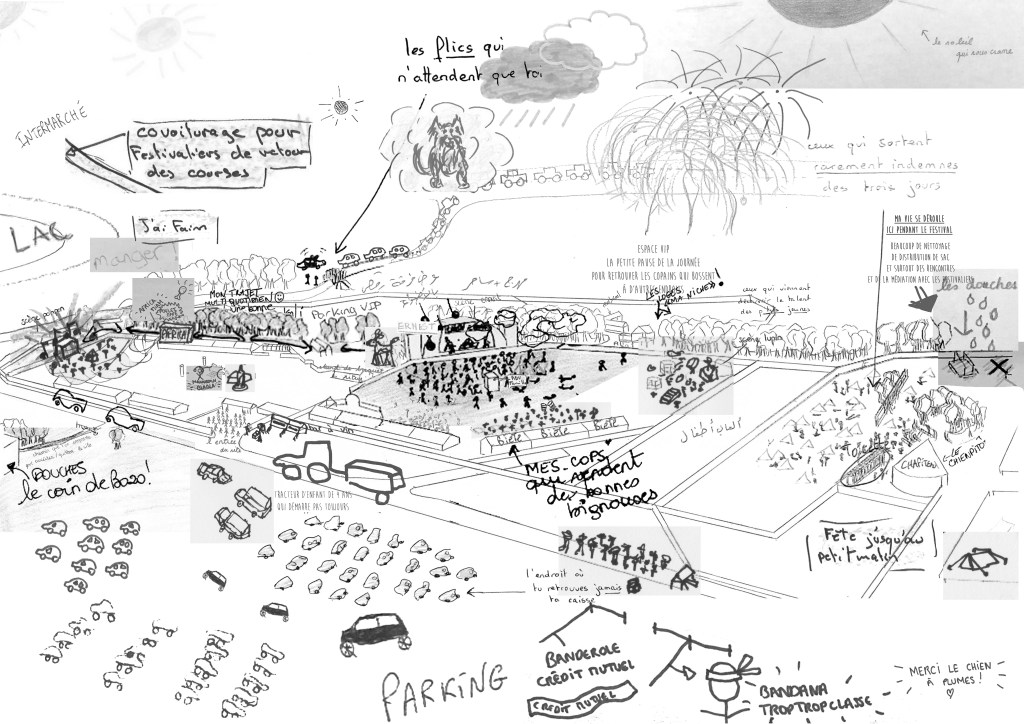 le soleil
qui nous crame
les flics qui
n'attendent que toi
INTERMARCHÉ
covoiturage pour
Festivaliers de retour
des courses
ceux qui sortent
rarement indemnes
des trois jours
J'ai Faim
LAC
manger !
MA VIE SE DÉROULE
ICI PENDANT LE FESTIVAL
BEAUCOUP DE NETTOYAGE
DE DISTRIBUTION DE SAC
ET SURTOUT DES RENCONTRES
ET DE LA MÉDIATION AVEC LES FESTIVALIERS
ESPACE VIP
LA PETITE PAUSE DE LA JOURNÉE
POUR RETROUVER LES COPAINS QUI BOSSENT
À D'AUTRES
les douches
MON TRAJET
MULTI-QUOTIDIEN
Parking VIP
ceux qui viennent
ERNEST
AFRICA
entrée
du site
Bière Bière Bière
MES COPS
qui vendent
des bonnes
bignouses
CHAPITEAU
LE CHIENPITO
DOUCHES
le coin de Bozo !
TRACTEUR D'ENFANT DE 4 ANS
QUI DÉMARRE PAS TOUJOURS
Fête jusqu'au
petit matin
l'endroit où
tu retrouves jamais
ta caisse
PARKING
BANDEROLE
CRÉDIT MUTUEL
CRÉDIT MUTUEL
BANDANA
TROPTROPCLASSE
MERCI LE CHIEN
À PLUMES !